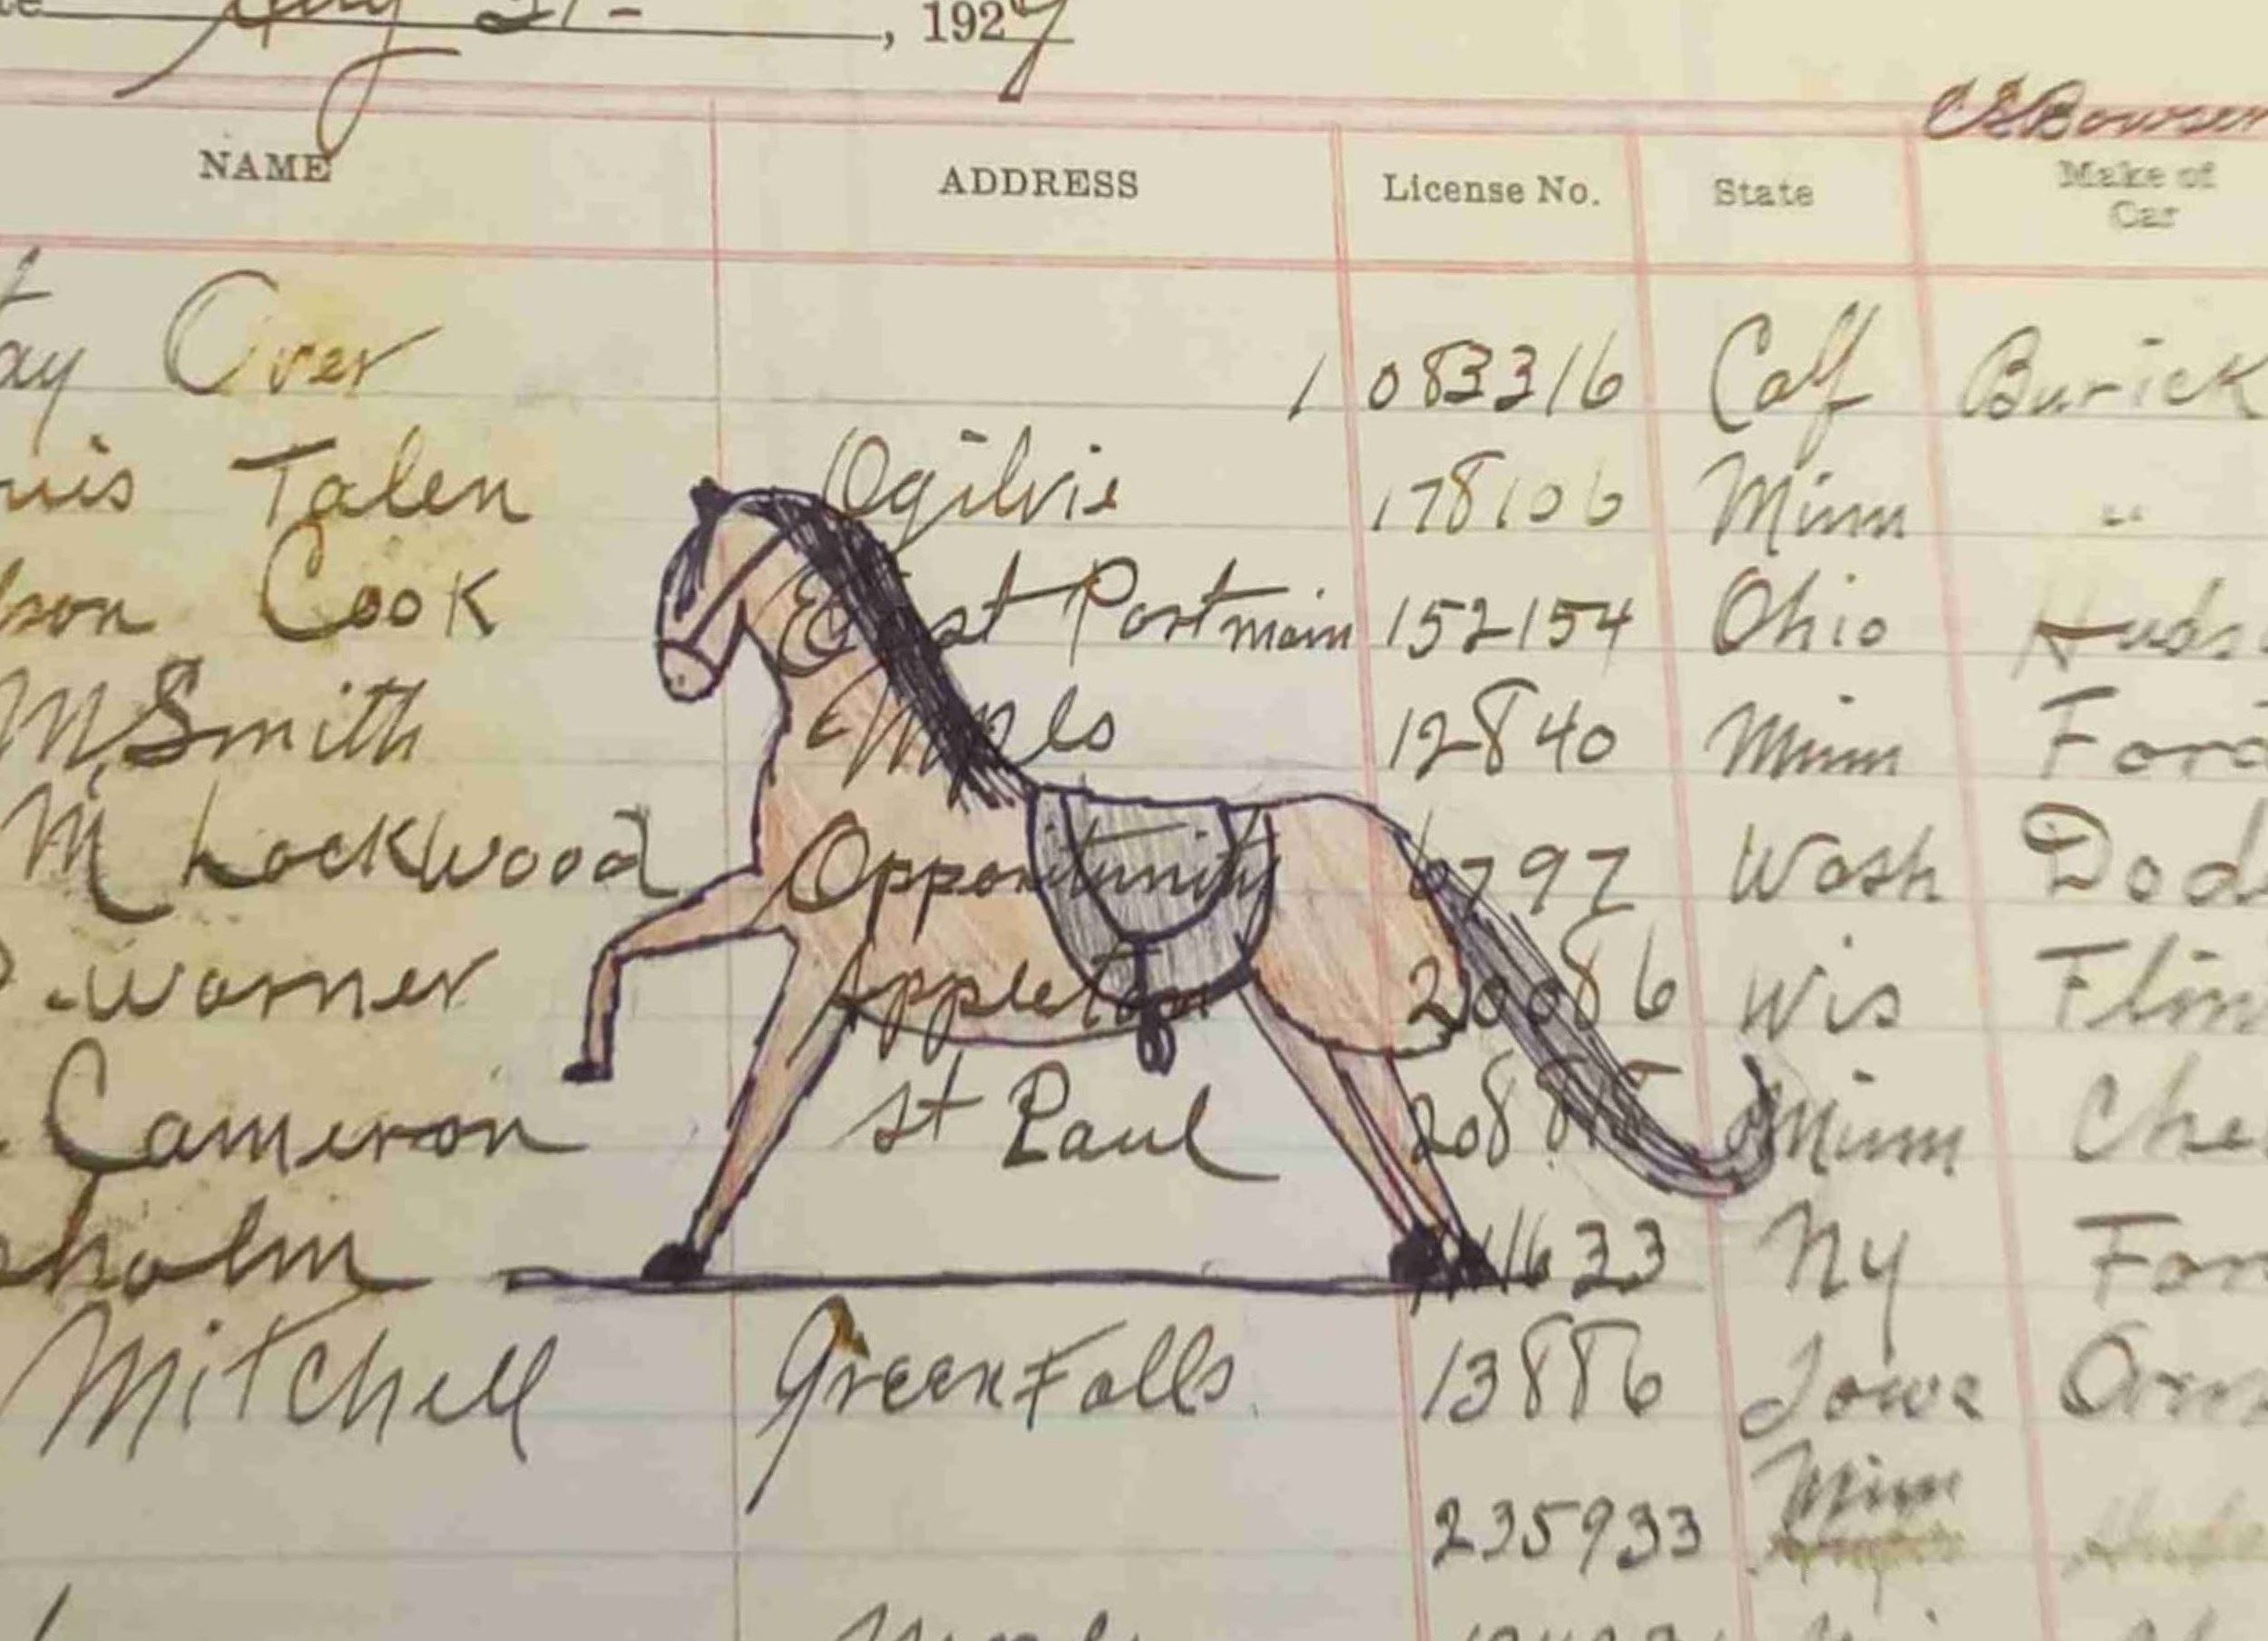 , 1927
NAME ADDRESS License No. State Make of Car
ay Over 1 083316 Calf Burick
Talen Ogilvie 178106 Minn "
son Cook East Portmain 152154 Ohio Huds
M Smith Mpls 12840 Minn Ford
M Lockwood Opportunity 6797 Wash Dod
Warner Appleton 20086 Wis Flin
Cameron St Paul Minn Che
holm 11633 Ny For
Mitchell Green Falls 13886 Iowa
235933 Minn